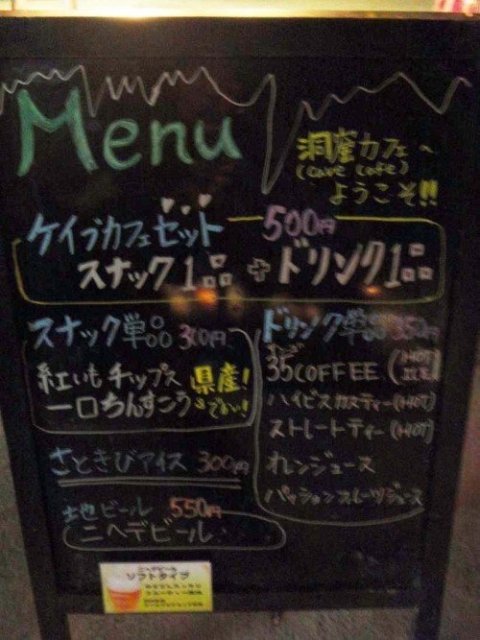 Menu
洞窟カフェへ
(cave cafe)
ようこそ!!
ケイブカフェセット 500円
スナック1品 + ドリンク1品
スナック単品 300円
紅いもチップス 県産!
一口ちんすこう
さとうきびアイス 300円
地ビール 550円
ニヘデビール
ドリンク単品 350円
35COFFEE (HOT
ハイビスカスティー(HOT)
ストレートティー(HOT)
オレンジュース
パッションフルーツジュース
ニヘデビール
ソフトタイプ